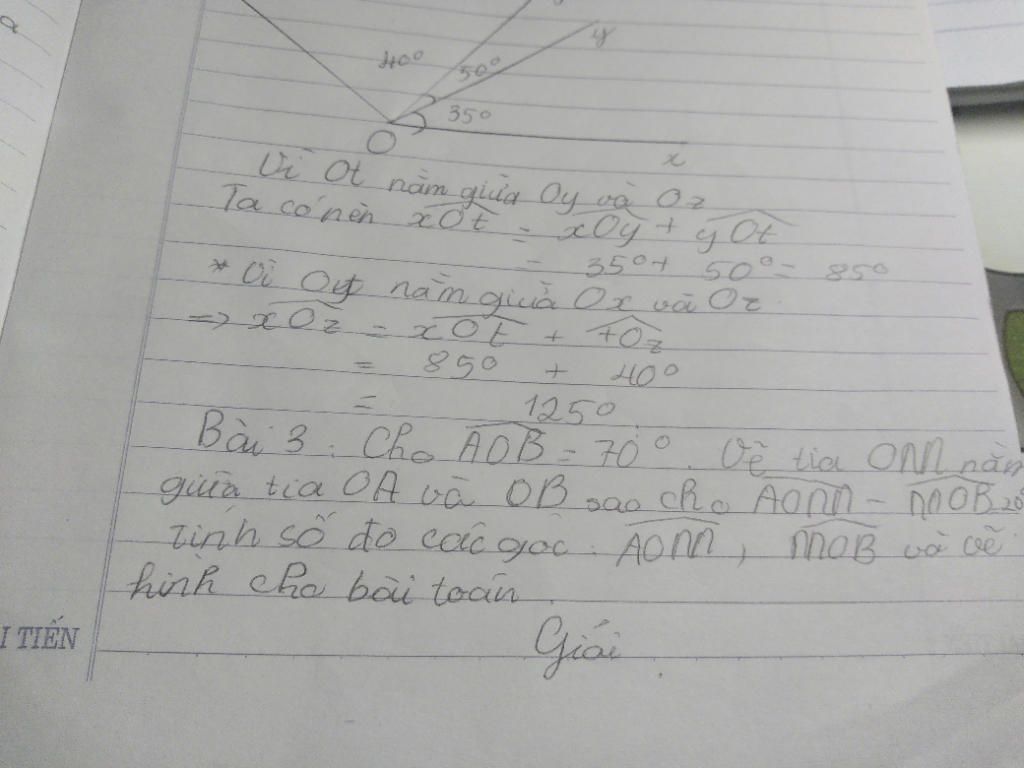 a
y
40°
50°
35°
O
x
Vì Ot nằm giữa Oy và Oz
Ta có nên xOt = xOy + yOt
= 35° + 50° = 85°
* Vì Oy nằm giữa Ox và Oz
=> xOz = xOt + tOz
= 85° + 40°
= 125°
Bài 3 : Cho AOB = 70°. Vẽ tia OM nằm
giữa tia OA và OB sao cho AOM - MOB = 20°
Tính số đo các góc : AOM, MOB và vẽ
hình cho bài toán.
Giải
I TIẾN